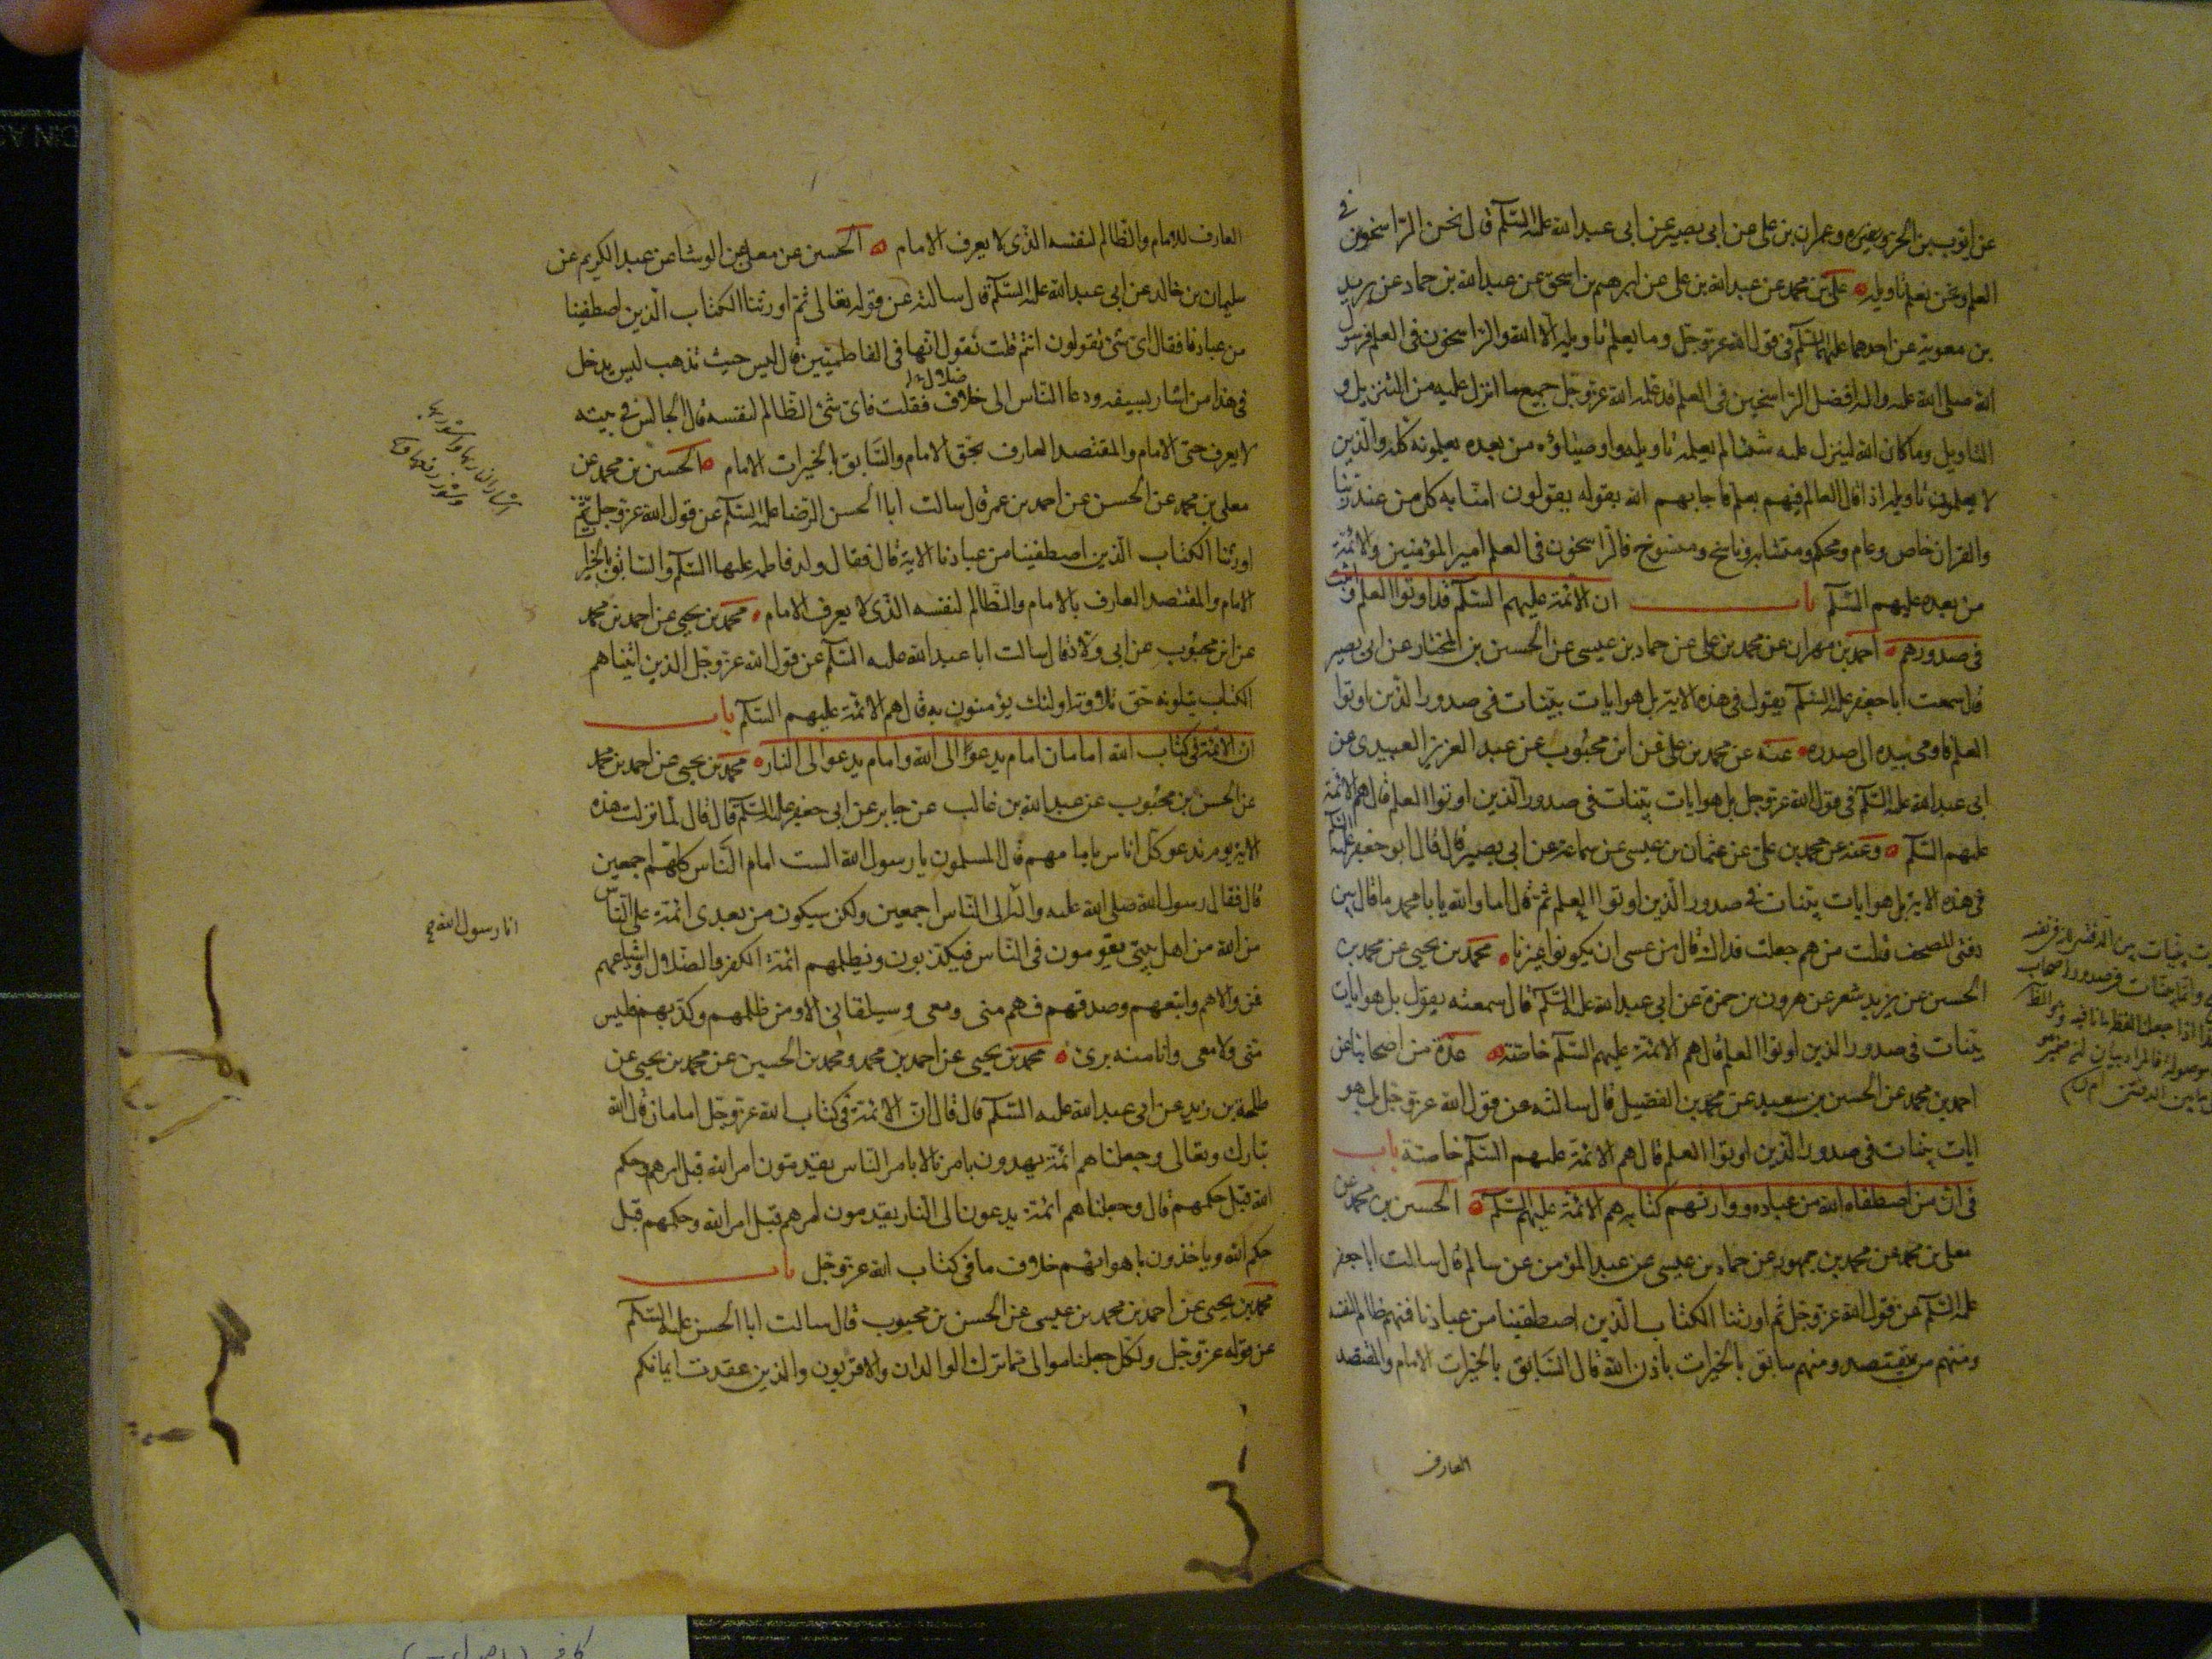 عن ايوب بن الحر وغيره وعمران بن علی عن ابی بصير عن ابی عبدالله عليه السّلم قال نحن الرّاسخون فی
العلم ونحن نعلم تاويله علی بن محمد عن عبدالله بن علی عن ابرهيم بن اسحق عن عبدالله بن حماد عن بريد
بن معوية عن احدهما عليهما السّلم فی قول الله عزّوجلّ وما يعلم تاويله الا الله والراسخون فی العلم فرسول
الله صلی الله عليه واله افضل الراسخين فی العلم قد علمه الله عزّوجلّ جميع ما انزل عليه من التنزيل و
التاويل وما كان الله لينزل عليه شيئا لم يعلمه تاويله واوصياؤه من بعده يعلمونه كلّه والّذين
لا يعلمون تاويله اذا قال العالم فيهم بعلم فاجابهم الله بقوله يقولون امنّا به كل من عند ربّنا
والقران خاص وعام ومحكم ومتشابه وناسخ ومنسوخ فالراسخون فی العلم امير المؤمنين والائمّة
من بعده عليهم السّلم باب ان الائمّة عليهم السّلم قد اوتوا العلم واثبت
فی صدورهم احمد بن مهران عن محمد بن علی عن حماد بن عيسی عن الحسين بن المختار عن ابی بصير
قال سمعت ابا جعفر عليه السّلم يقول فی هذه الاية بل هو ايات بيّنات فی صدور الذين اوتوا
العلم فاومی بيده الی صدره عنه عن محمد بن علی عن ابن محبوب عن عبد العزيز العبيدی عن
ابی عبدالله عليه السّلم فی قول الله عزّوجلّ بل هو ايات بيّنات فی صدور الّذين اوتوا العلم قال هم الائمّة
عليهم السّلم وعنه عن محمد بن علی عن عثمان بن عيسی عن سماعة عن ابی بصير قال قال ابو جعفر عليه السّلم
فی هذه الاية بل هو ايات بيّنات فی صدور الّذين اوتوا العلم ثم قال اما والله يا با محمد ما قال بين
دفتی المصحف قلت من هم جعلت فداك قال من عسی ان يكونوا غيرنا محمد بن يحيی عن محمد بن
الحسين عن يزيد شعر عن هرون بن حمزة عن ابی عبدالله عليه السّلم قال سمعته يقول بل هو ايات
بيّنات فی صدور الذين اوتوا العلم قال هم الائمّة عليهم السّلم خاصّة عدّة من اصحابنا عن
احمد بن محمد عن الحسين بن سعيد عن محمد بن الفضيل قال سالته عن قول الله عزّوجلّ بل هو
ايات بيّنات فی صدور الّذين اوتوا العلم قال هم الائمّة عليهم السّلم خاصّة باب
فی انّ من اصطفاه الله من عباده و وارثهم كتابه هم الائمّة عليهم السّلم الحسين بن محمد عن
معلی بن محمد عن محمد بن جمهور عن حماد بن عيسی عن عبد المؤمن عن سالم قال سالت ابا جعفر
عليه السّلم عن قول الله عزّوجلّ ثم اورثنا الكتاب الّذين اصطفينا من عبادنا فمنهم ظالم لنفسه
ومنهم مقتصد ومنهم سابق بالخيرات باذن الله قال السّابق بالخيرات الامام والمقتصد
العارف
العارف للامام والظالم لنفسه الّذی لا يعرف الامام الحسين عن معلی عن الوشا عن عبد الكريم عن
سليمان بن خالد عن ابی عبدالله عليه السّلم قال سالته عن قوله تعالی ثمّ اورثنا الكتاب الّذين اصطفينا
من عبادنا فقال ای شئ تقولون انتم قلت نقول انّها فی الفاطميّين قال ليس حيث تذهب ليس يدخل
فی هذا من اشار بسيفه ودعا النّاس الی خلاف فقلت فای شئ الظّالم لنفسه قال الجالس فی بيته
ضلال
لا يعرف حق الامام والمقتصد العارف بحق الامام والسّابق بالخيرات الامام الحسين بن محمد عن
معلی بن محمد عن الحسن عن احمد بن عمر قال سالت ابا الحسن الرضا عليه السّلم عن قول الله عزّوجلّ ثمّ
اورثنا الكتاب الّذين اصطفينا من عبادنا الاية قال فقال ولد فاطمة عليها السّلم والسّابق بالخيرات
الامام والمقتصد العارف بالامام والظّالم لنفسه الّذی لا يعرف الامام محمد بن يحيی عن احمد بن محمد
عن ابن محبوب عن ابی ولّاد قال سالت ابا عبدالله عليه السّلم عن قول الله عزّوجلّ الذين اتيناهم
الكتاب يتلونه حق تلاوته اولئك يؤمنون به قال هم الائمّة عليهم السّلم باب
ان الائمّة فی كتاب الله امامان امام يدعوا الی الله وامام يدعو الی النار محمد بن يحيی عن احمد بن محمد
عن الحسن بن محبوب عن عبدالله بن غالب عن جابر عن ابی جعفر عليه السّلم قال قال لمّا نزلت هذه
الاية يوم ندعو كل اناس بامامهم قال المسلمون يا رسول الله الست امام النّاس كلّهم اجمعين
قال فقال رسول الله صلی الله عليه واله الی النّاس اجمعين ولكن سيكون من بعدی ائمّة علی النّاس
انا رسول الله
من الله من اهل بيتی يقومون فی النّاس فيكذّبون ويظلمهم ائمّة الكفر والضّلال واشياعهم
فمن والاهم واتبعهم وصدقهم فهم منی ومعی وسيلقانی الا ومن ظلمهم وكذّبهم فليس
منّی ولا معی وانا منه بریٔ محمد بن يحيی عن احمد بن محمد ومحمد بن الحسين عن محمد بن يحيی عن
طلحة بن زيد عن ابی عبدالله عليه السّلم قال قال انّ الائمّة فی كتاب الله عزّوجلّ امامان قال الله
تبارك وتعالی وجعلناهم ائمّة يهدون بامرنا لا بامر النّاس يقدمون امر الله قبل امرهم وحكم
الله قبل حكمهم قال وجعلناهم ائمّة يدعون الی النار يقدمون امرهم قبل امر الله وحكمهم قبل
حكم الله وياخذون باهوائهم خلاف ما فی كتاب الله عزّوجلّ باب
محمد بن يحيی عن احمد بن محمد بن عيسی عن الحسن بن محبوب قال سالت ابا الحسن عليه السّلم
عن قوله عزّوجلّ ولكل جعلنا موالی ممّا ترك الوالدان والاقربون والذين عقدت ايمانكم